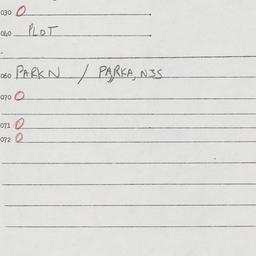 030 0
040 PLOT
060 PARKN / PARKA, N35
070 0
071 0
072 0